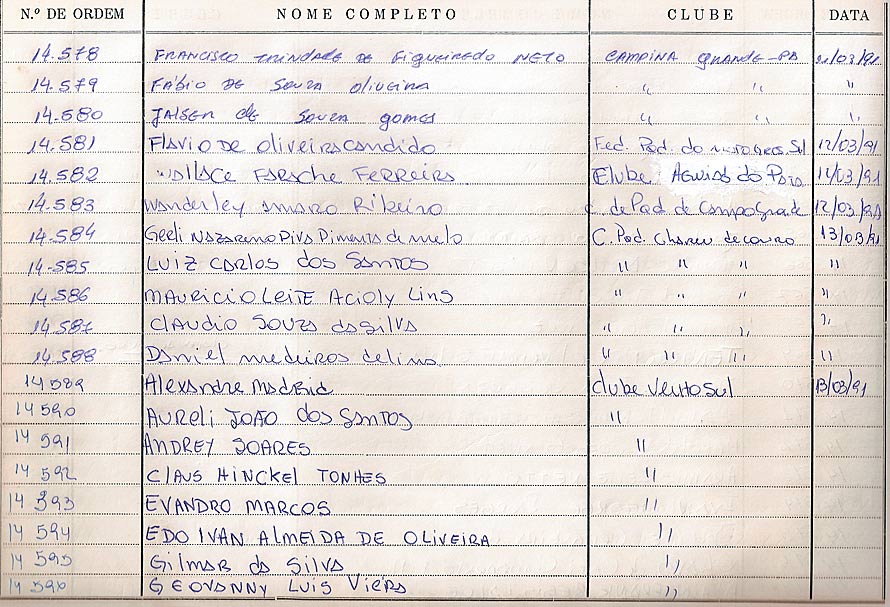 N.º DE ORDEM NOME COMPLETO CLUBE DATA
14.578 FRANCISCO TRINDADE DE FIGUEIREDO NETO CAMPINA GRANDE-PB /03/91
14.579 FÁBIO DE SOUZA OLIVEIRA " " "
14.580 JALSEN DE SOUZA gomes " " "
14.581 FLAVIO DE oliveira candido Fed. Pad. do Sul 12/03/91
14.582 WALLACE FARACHE FERREIRA Clube AGUIAS do 14/03/91
14.583 Wanderley amaro Ribeiro C. de Pad. de Campo Grande 12/03/91
14.584 Gedi NAZARENO Piva Pimenta de melo C. Pad. de couro 13/03/91
14.585 LUIZ CARLOS dos SANTOS " " " "
14.586 MAURICIO LEITE ACIOLY Lins " " " "
14.587 CLAUDIO SOUZA da silva " " " "
14.588 Daniel medeiros delino " " " "
14589 Alexandre Madrid clube Vento Sul 13/03/91
14590 AURELI JOÃO dos SANTOS "
14591 ANDREY SOARES "
14592 CLAUS HINCKEL TONHES "
14593 EVANDRO MARCOS "
14594 EDO IVAN ALMEIDA DE OLIVEIRA "
14595 Gilmar da Silva "
14596 GEOVANNY LUIS Vieira "